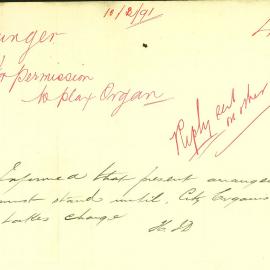 10/2/91
unger
for permission
to play Organ
Reply sent
on other
Informed that present arrange
must stand until City Organis
takes charge